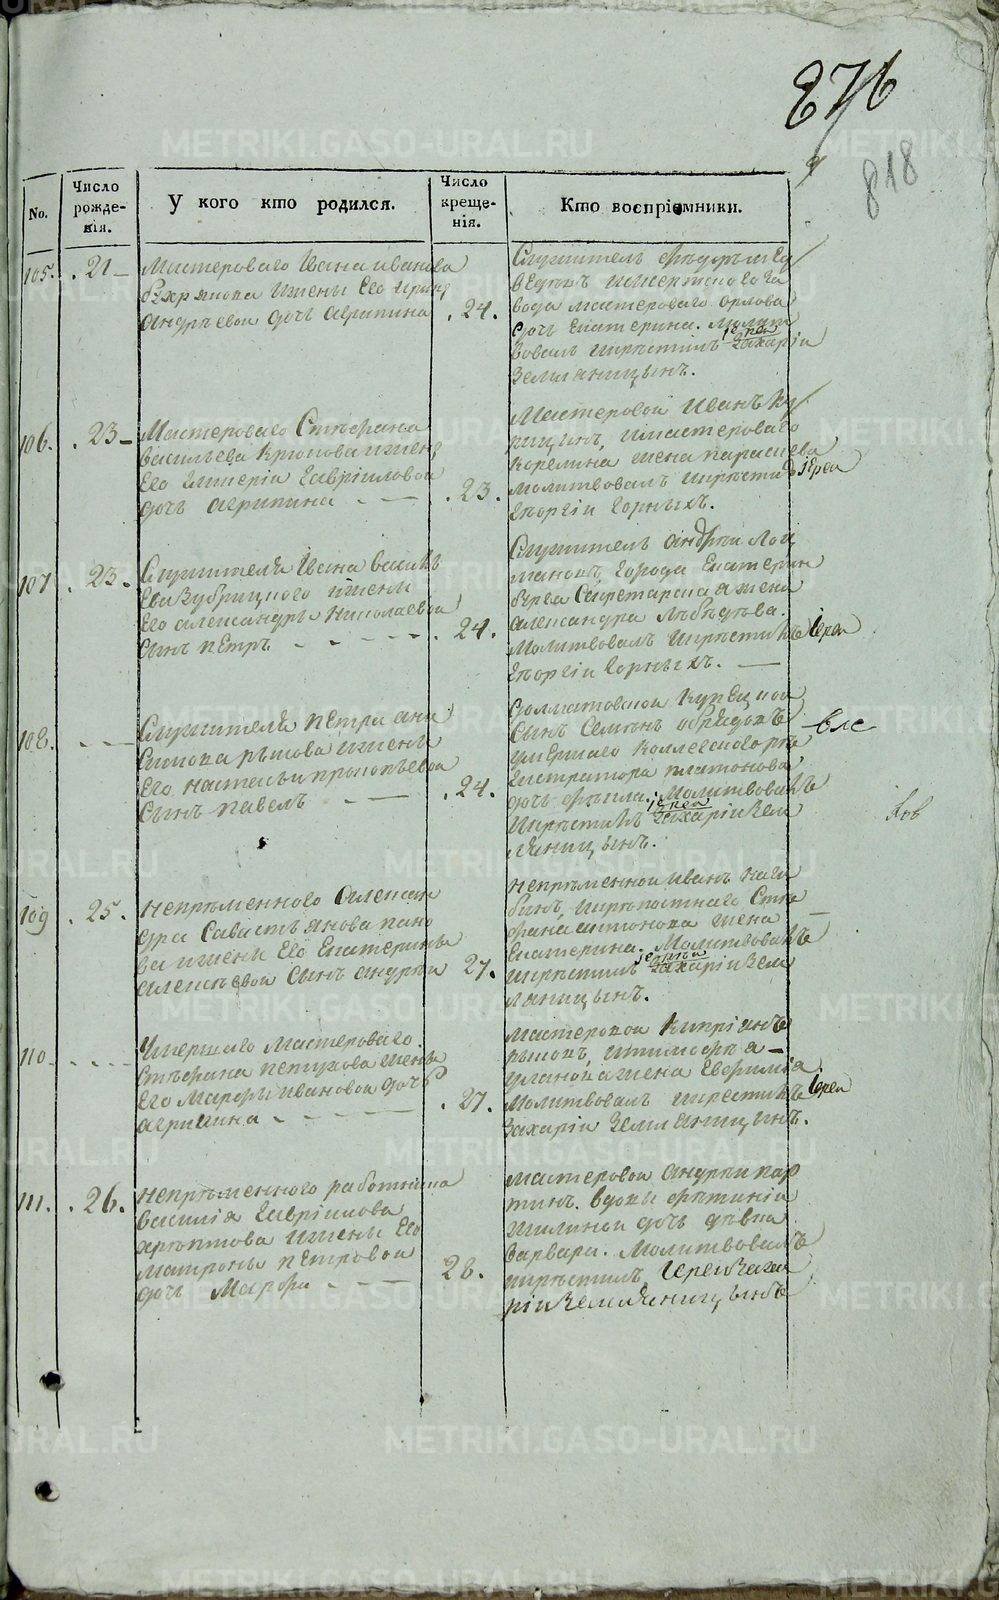 876
818
No.
Число рожденія.
У кого кто родился.
Число крещенія.
Кто воспріемники.
105. 21
Мастероваго Ивана иванова
ижены Его Ирины
андрѣевой дочь агрипина
24.
Служитель
вода мастероваго орлова
дочь Екатерина. Молит
вовалъ икрѣстилъ іерей Захаріи
Земляницынъ.
106. 23
Мастероваго Стефана
васильева крюкова ижены
Его Гликеріи Гавріиловой
дочь агрипина
23.
Мастеровой Иванъ
имастероваго
корелина жена параскева
Молитвовалъ икрѣстилъ іереи
Георгіи Горныхъ.
107 23.
Служителя Ивана василь
ева Зубрицкого ижены
Его александры Николаевой
сынъ пЕтръ
24.
Служитель андрѣи
города Екатерин
бурга Секретарская жена
александра лѣбѣдѣва.
Молитвовалъ икрѣстилъ Іереи
Георгіи Горныхъ.
108.
Служителя пЕтра ани
симова ижены
Его настасьи прокопьевой
Сынъ павелъ
24.
долматовской купецкой
сынъ Семенъ
умершаго коллежского ре
гистратора платонова
дочь фекла. Молитвовалъ
икрѣстилъ іереи Захаріи Зем
ляницынъ.
109 25.
непремѣнного алексан
дра Савастьянова пано
ва ижены Его Екатерины
алексѣевой Сынъ андрѣи
27.
непремѣнной иванъ
икрѣпостнаго Сте
фана антонова жена
Екатерина. Молитвовалъ
икрѣстилъ іереи Захаріи Зем
ляницынъ.
110
Умершаго мастероваго
Стефана пЕтухова жены
Его Марфы ивановой дочь
агрипина
27.
мастеровой кипріанъ
итимофѣя
уланова жена Евфимія
Молитвовалъ икрестилъ Іереи
Захаріи Земляницынъ.
111. 26.
непремѣнного работника
василія Гавріилова
ижены Его
матроны пЕтровой
дочь Марфа
28.
мастеровой андрѣи
вдовы фетиніи
жилиной дочь дѣвка
варвара. Молитвовалъ
икрѣстилъ Іереи Заха
ріи Земляницынъ
METRIKI.GASO-URAL.RU